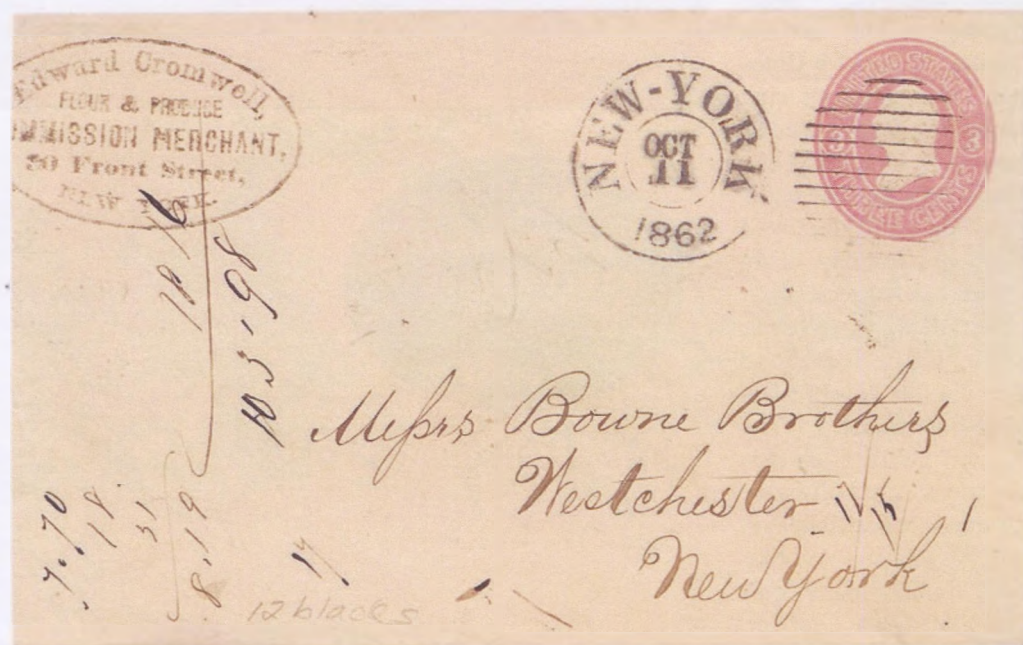 Edward Cromwell,
FLOUR & PRODUCE
MMISSION MERCHANT,
90 Front Street,
NEW YORK.
NEW-YORK
OCT
11
1862
UNITED STATES
3 3
THREE CENTS
Messrs Bowne Brothers
Westchester
New York
18
8.19
17
12 blacks